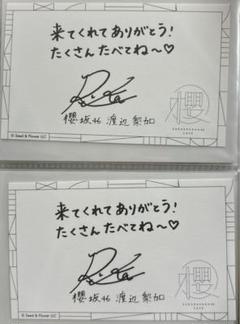 来てくれてありがとう!
たくさんたべてね〜♡
櫻坂46 渡辺梨加
櫻
© Seed & Flower LLC
来てくれてありがとう!
たくさんたべてね〜♡
櫻坂46 渡辺梨加
櫻
© Seed & Flower LLC